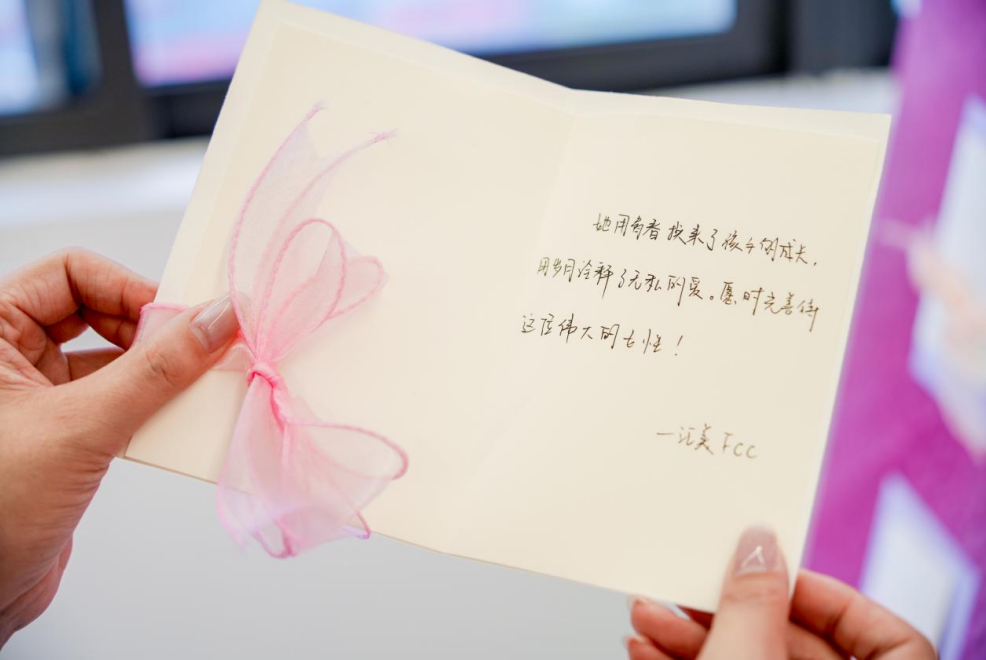 她用青春换来了孩子的成长,
用岁月诠释了无私的爱。愿时光善待
这位伟大的女性!
—汇美FCC